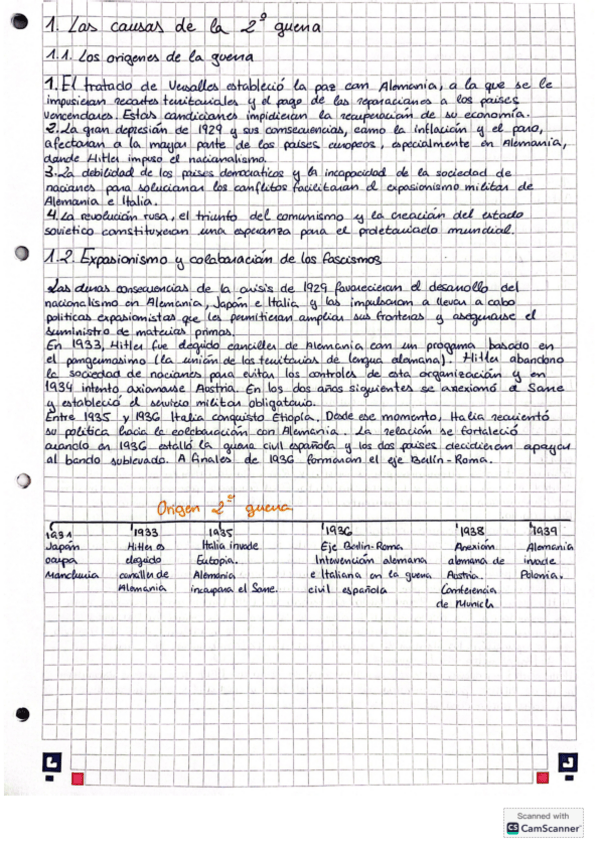 1. Las causas de la 2º guerra
1.1. Los orígenes de la guerra
1. El tratado de Versalles estableció la paz con Alemania, a la que se le
impusieron recortes territoriales y el pago de las reparaciones a los países
vencendores. Estas condiciones impidieron la recuperación de su economía.
2. La gran depresión de 1929 y sus consecuencias, como la inflación y el paro,
afectaron a la mayor parte de los países europeos, especialmente en Alemania,
donde Hitler impuso el nacionalismo.
3. La debilidad de los países democráticos y la incapacidad de la sociedad de
naciones para solucionar los conflictos facilitaron el expasionismo militar de
Alemania e Italia.
4. La revolución rusa, el triunfo del comunismo y la creación del estado
sovietico constituyeron una esperanza para el proletariado mundial.
1.2. Expasionismo y colaboración de los fascismos
Las duras consecuencias de la crisis de 1929 favorecieron el desarrollo del
nacionalismo en Alemania, Japón e Italia y las impulsaron a llevar a cabo
políticas expasionistas que les permitieran ampliar sus fronteras y asegurarse el
suministro de materias primas.
En 1933, Hitler fue elegido canciller de Alemania con un programa basado en
el pangermanismo (la unión de los territorios de lengua alemana). Hitler abandono
la sociedad de naciones para evitar los controles de esta organización y en
1934 intento axionarse Austria. En los dos años siguientes se anexionó a Sarre
y estableció el servicio militar obligatorio.
Entre 1935 y 1936 Italia conquisto Etiopía. Desde ese momento, Italia reorientó
su política hacia la colaboración con Alemania. La relación se fortaleció
cuando en 1936 estalló la guerra civil española y los dos países decidieron apoyar
al bando sublevado. A finales de 1936 formaron el eje Berlín-Roma.
Origen 2º guerra
1931 1933 1935 1936 1938 1939
Japón Hitler es Italia invade Eje Berlin-Roma. Anexión Alemania
ocupa elegido Eutopia. Intervención alemana alemana de invade
Manchuria canciller de Alemania e Italiana en la guerra Austria. Polonia.
Alemania incorpora el Sarre. civil española Conferencia
de Munich
Scanned with
CS CamScanner